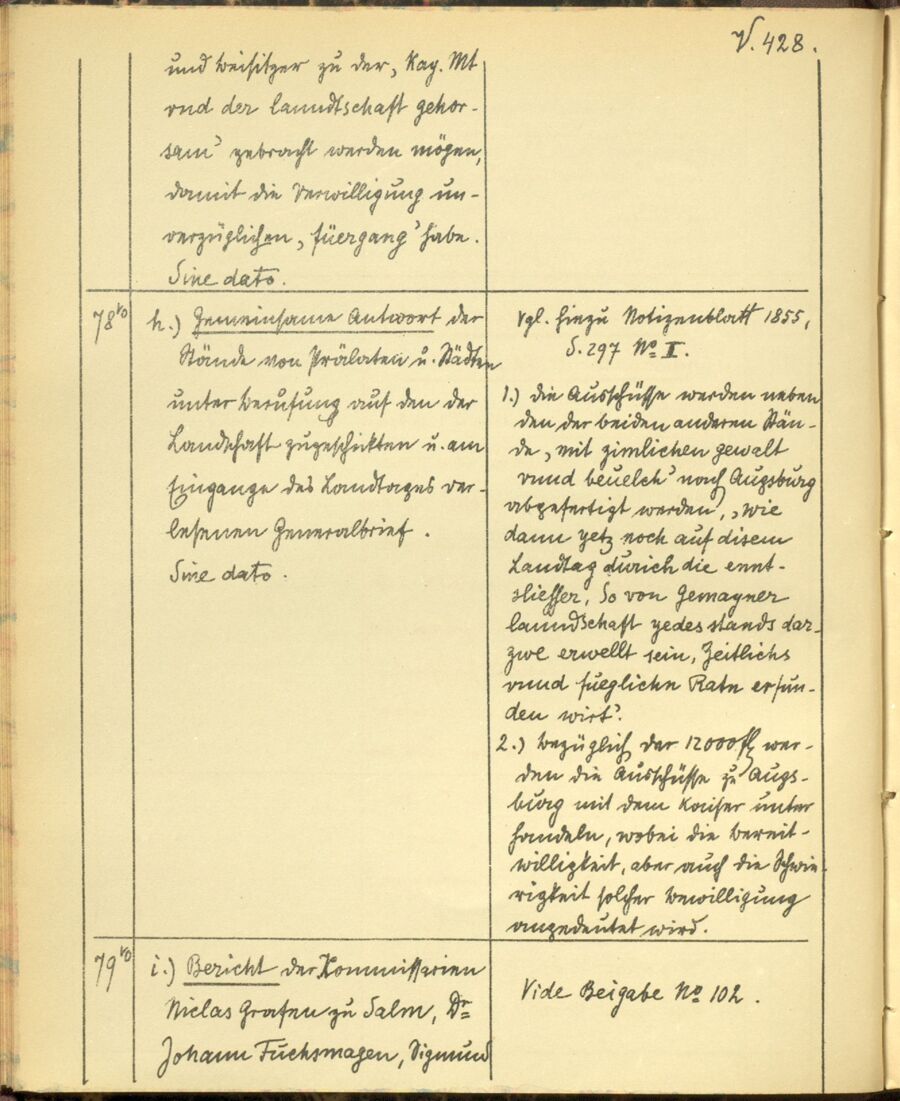 V. 428.
und Beisitzer zu der „Kay. Mt
vnd der lanndtschaft gehor-
sam‟ gebracht werden mögen,
damit die Verwilligung un-
verzüglichen „füergang‟ habe.
Sine dato.
78ro
h.) Gemeinsame Antwort der
Stände von Prälaten u. Städten
unter Berufung auf den der
Landschaft zugeschickten u. am
Eingange des Landtages ver-
lesenen Generalbrief.
Sine dato.
Vgl. hiezu Notizenblatt 1855,
S. 297 No II.
1.) die Ausschüsse werden neben
den der beiden anderen Stän-
de „mit zimlichen gewalt
vnnd beuelch‟ nach Augsburg
abgefertigt werden, „wie
dann yetz noch auf disem
Landtag durich die ennt-
sliesser, So von Gemayner
lanndschaft yedes stands dar-
zue erwellt sein, Zeitlichs
vnnd fueglichn Ratn erfun-
den wirt‟.
2.) bezüglich der 12000 fl wer-
den die Ausschüsse zu Augs-
burg mit dem Kaiser unter
handeln, wobei die Bereit-
willigkeit, aber auch die Schwie-
rigkeit solcher Bewilligung
angedeutet wird.
79ro
i.) Bericht der Kommissarien
Niclas Grafen zu Salm, Dr
Johann Fuchsmagen, Sigmund
Vide Beigabe No 102.